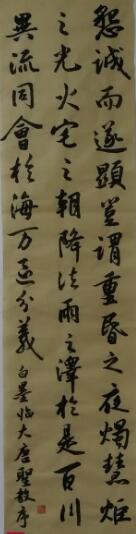 懇誠而遂顯豈謂重昏之夜燭慧炬
之光火宅之朝降法雨之澤於是百川
異流同會於海万区分義 白墨临大唐聖教序